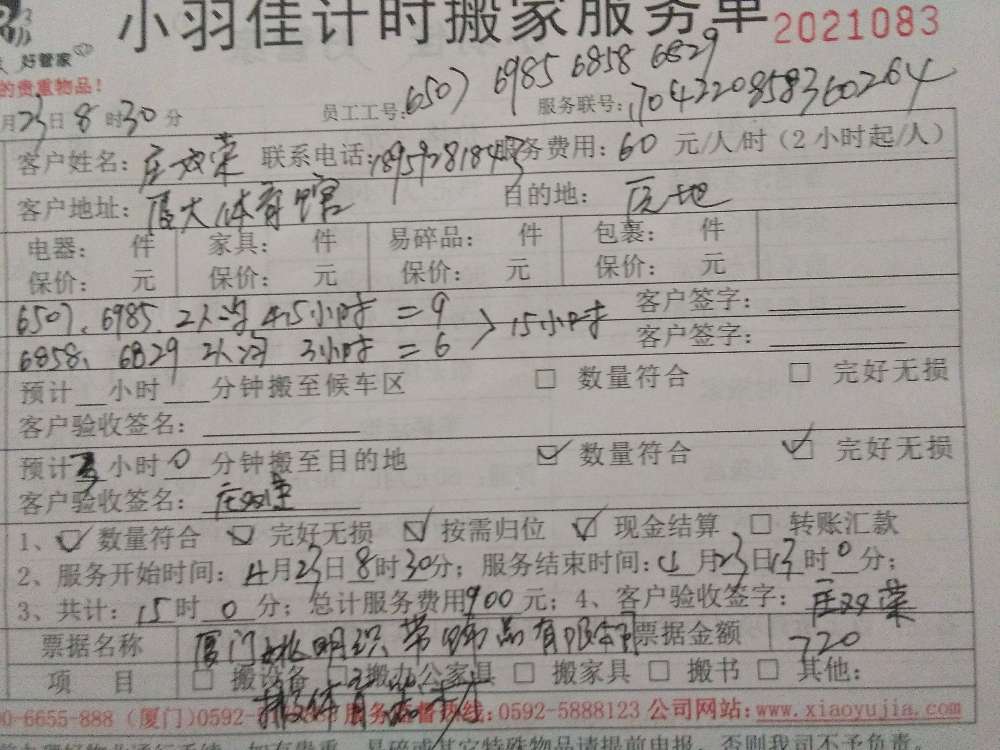 小羽佳计时搬家服务单 2021083
好管家
的贵重物品!
月23日8时30分 员工工号:6507 6985 6858 6829 服务联号:
客户姓名:庄双荣 联系电话: 服务费用:60元/人/时(2小时起/人)
客户地址:厦大体育馆 目的地:原地
电器: 件 家具: 件 易碎品: 件 包裹: 件
保价: 元 保价: 元 保价: 元 保价: 元
6507、6985、2人次 4.5小时 = 9 客户签字:
>15小时
6858、6829 2人次 3小时 = 6 客户签字:
预计 小时 分钟搬至候车区 □ 数量符合 □ 完好无损
客户验收签名:
预计 小时0分钟搬至目的地 ☑ 数量符合 ☑ 完好无损
客户验收签名:庄双荣
1、☑ 数量符合 ☑ 完好无损 ☑ 按需归位 ☑ 现金结算 □ 转账汇款
2、服务开始时间:4月23日8时30分;服务结束时间:4月23日13时0分;
3、共计:15时0分;总计服务费用900元;4、客户验收签字:庄双荣
票据名称 厦门姚明织带饰品有限公司 票据金额 720
项 目 □ 搬设备 □ 搬办公家具 □ 搬家具 □ 搬书 □ 其他:
搬体育器材
00-6655-888 (厦门)0592- 服务监督热线:0592-5888123 公司网站:www.xiaoyujia.com